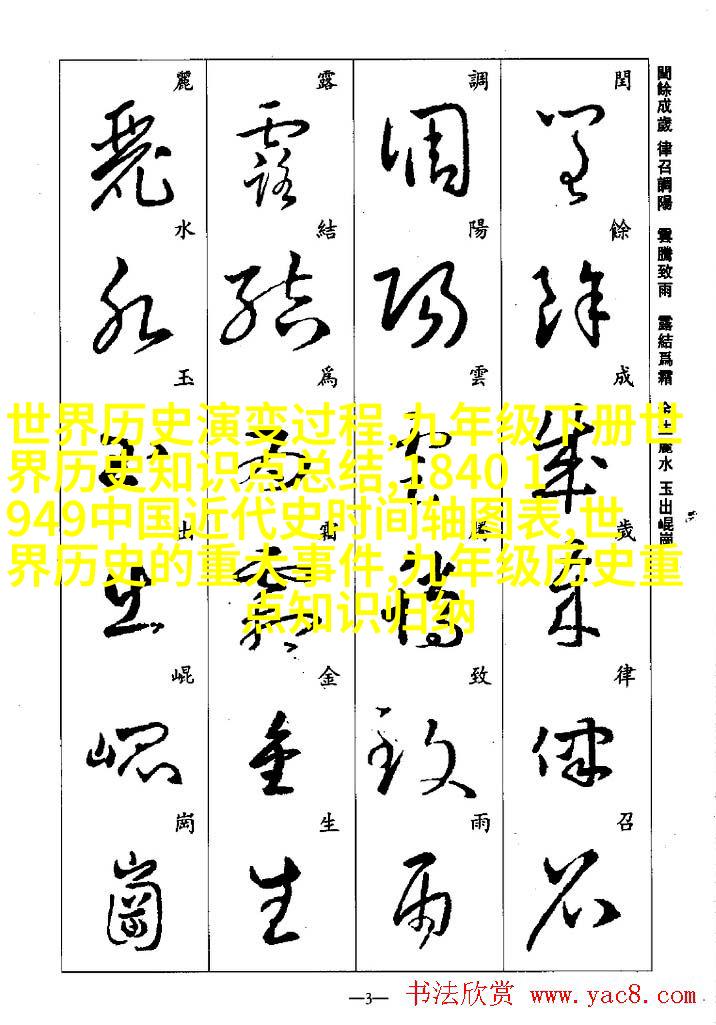 閏餘成歲 律召調陽 雲騰致雨 露結爲霜 金生麗水 玉出崐崗
閏餘成歲律召
閏餘成歲律召
調陽雲騰致雨
調陽雲騰致雨
露結爲霜金生
露結爲霜金生
麗水玉出崐崗
麗水玉出崐崗
世界历史演变过程,九年级下册世
界历史知识点总结,1840 1
949中国近代史时间轴图表,世
界历史的重大事件,九年级历史重
点知识归纳
—3—
书法欣赏 www.yac8.com